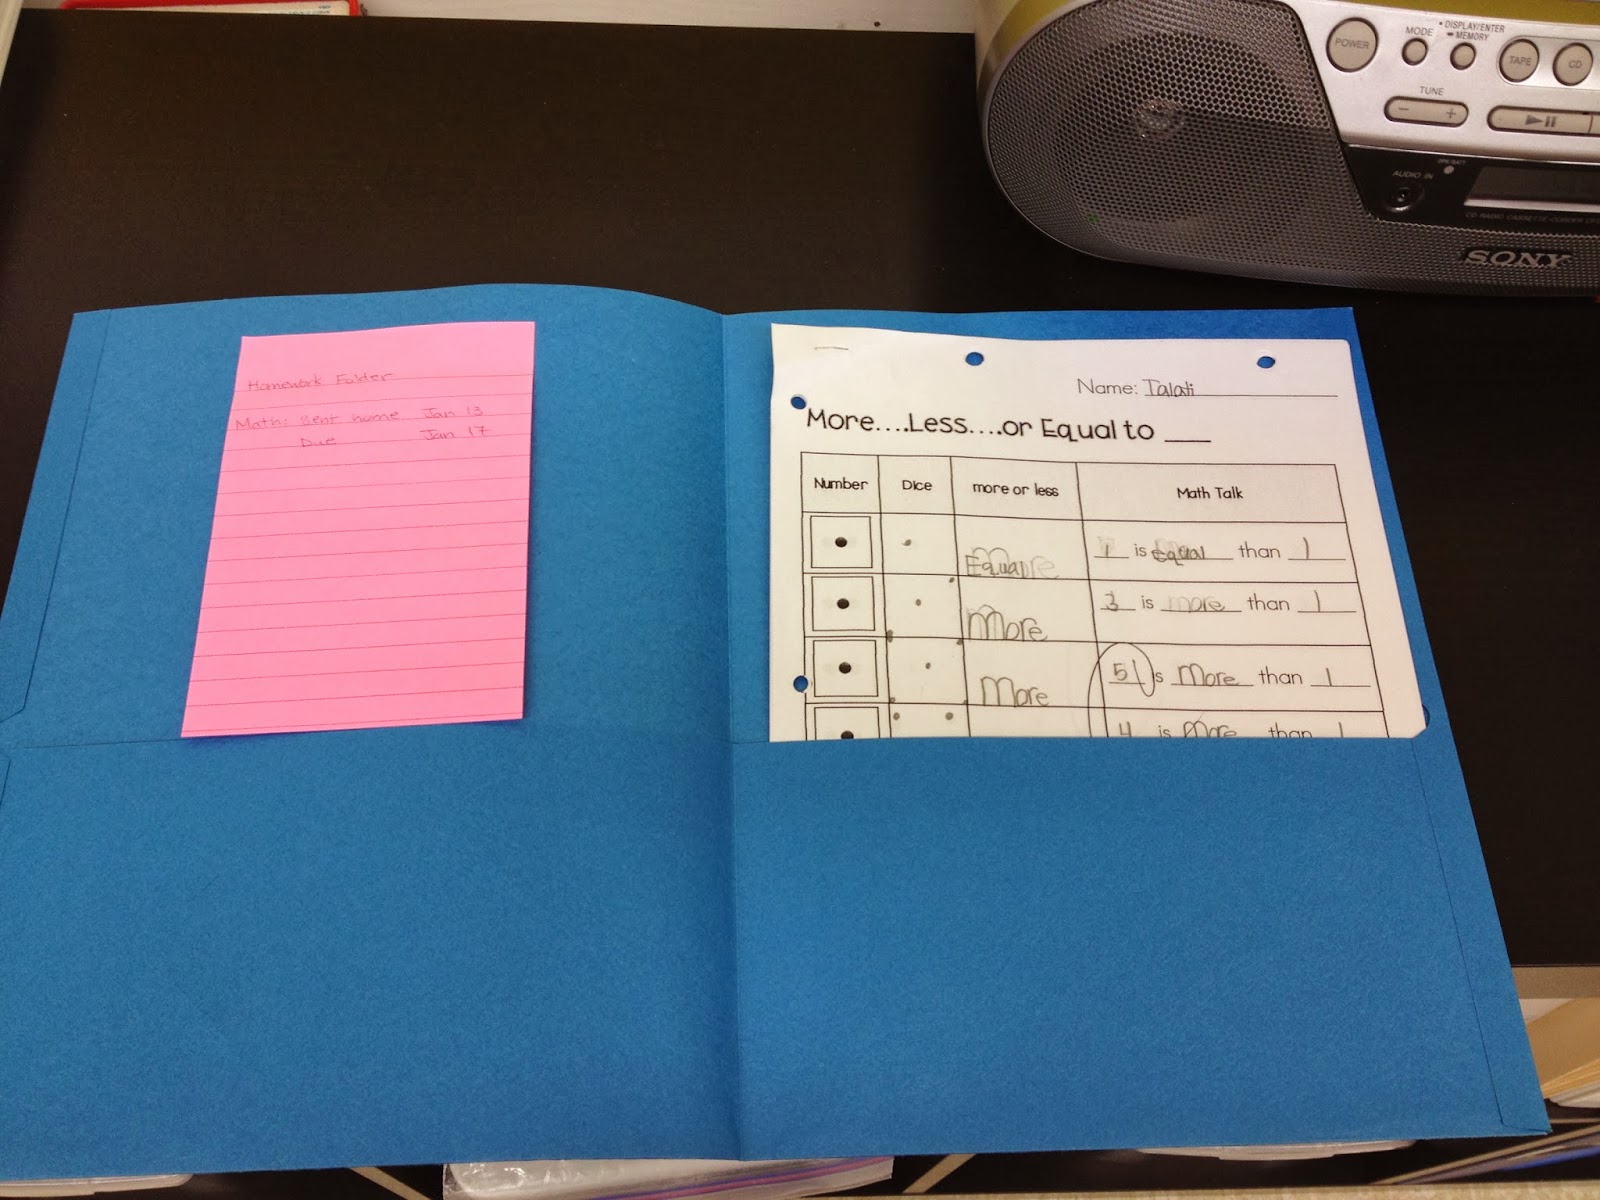 Homework Folder
Math: Sent home Jan 13
Due Jan 17
Name: Talati
More....Less....or Equal to ___
Number Dice more or less Math Talk
Equal 1 is equal than 1
More 3 is more than 1
More 51 is More than 1
4 is More than 1
POWER
MODE
• DISPLAY/ENTER
▬ MEMORY
TAPE
CD
TUNE
− +
AUDIO IN
OPR/BATT
CD RADIO CASSETTE-CORDER
SONY